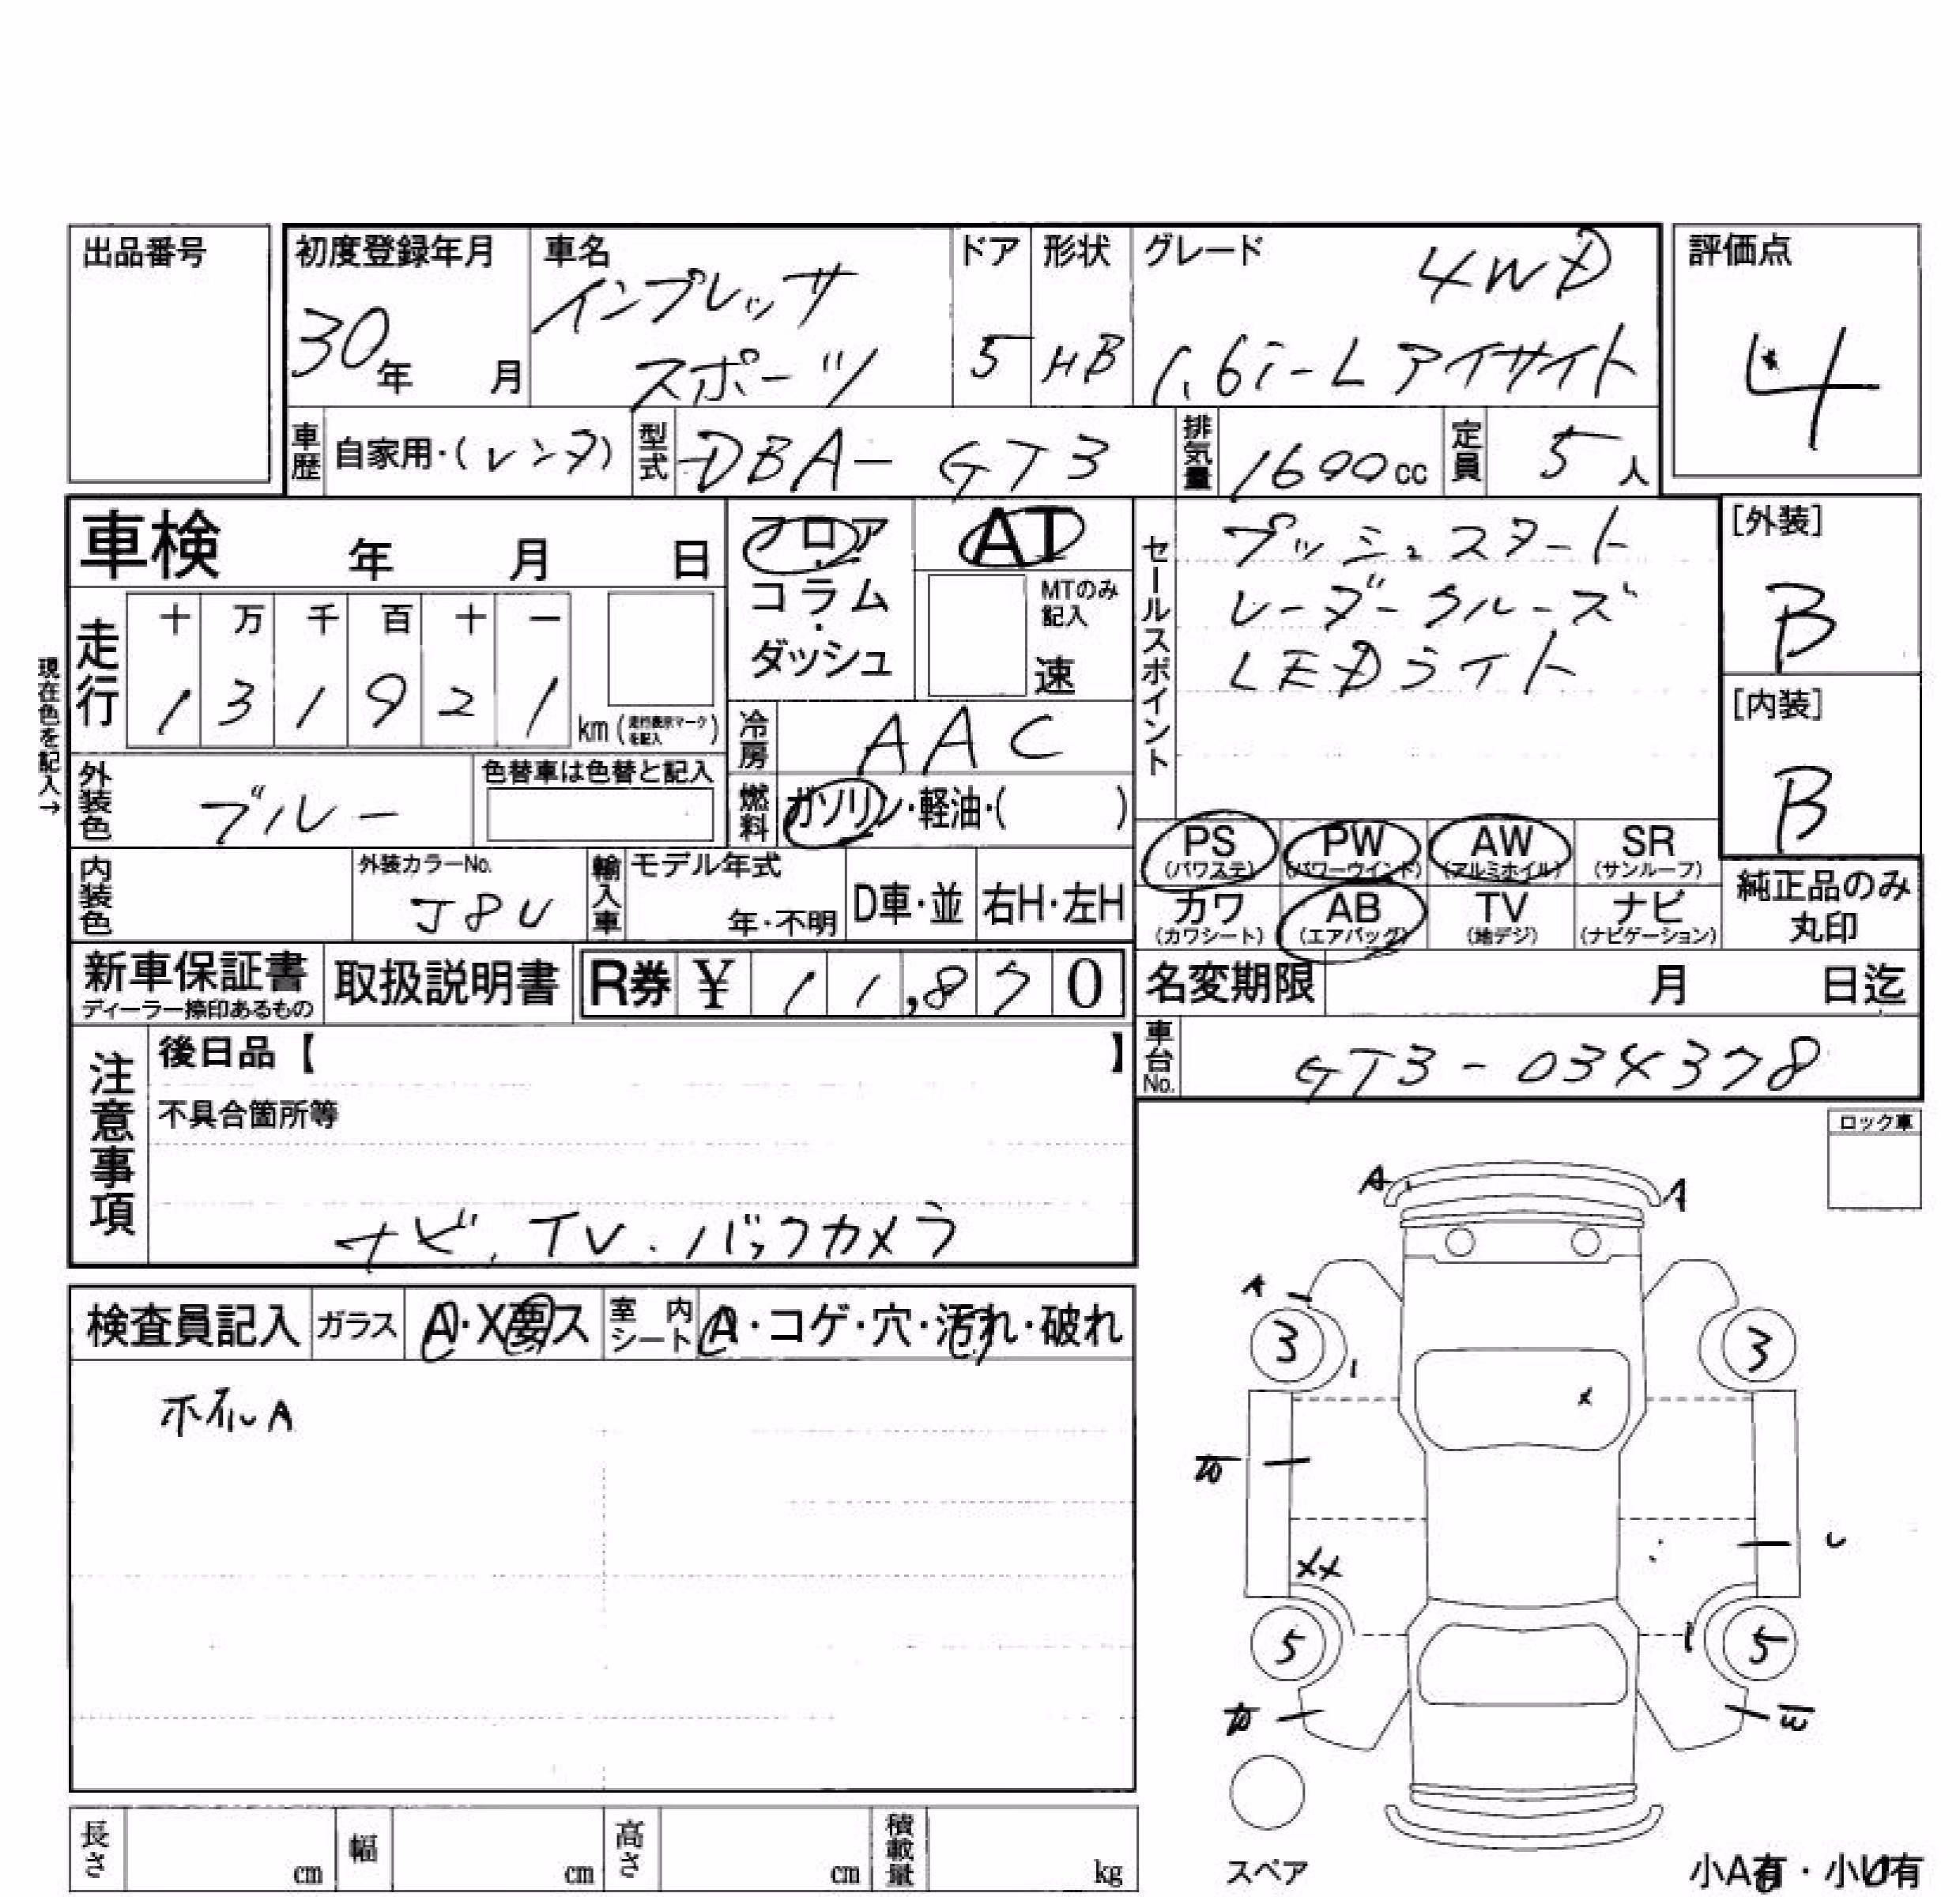 出品番号
初度登録年月
30年 月
車名
インプレッサ
スポーツ
ドア
5
形状
HB
グレード
4WD
1.6i-L アイサイト
評価点
4
車歴 自家用・(レンタ)
型式 DBA- GT3
排気量 1600cc
定員 5人
車検 年 月 日
フロア
コラム
・
ダッシュ
AT
MTのみ
記入
速
セールスポイント
プッシュスタート
レーダークルーズ
LEDライト
[外装]
B
[内装]
B
現在色を記入→
走行
十 万 千 百 十 一
1 3 1 9 2 1
km (走行表示マークを記入)
冷房 AAC
外装色 ブルー
色替車は色替と記入
燃料 ガソリン・軽油・( )
PS
(パワステ)
PW
(パワーウインド)
AW
(アルミホイル)
SR
(サンルーフ)
カワ
(カワシート)
AB
(エアバッグ)
TV
(地デジ)
ナビ
(ナビゲーション)
純正品のみ
丸印
内装色
外装カラーNo.
J8U
輸入車
モデル年式
年・不明
D車・並
右H・左H
新車保証書
ディーラー捺印あるもの
取扱説明書
R券 ¥ 11,870
名変期限 月 日迄
車台No. GT3-034378
注意事項
後日品【 】
不具合箇所等
ナビ. TV. バックカメラ
ロック車
検査員記入
ガラス A・X要ス
室内シート A・コゲ・穴・汚れ・破れ
ホイルA
A A
A
3 3
X
XX
5 5
スペア
小A有・小U有
長さ cm
幅 cm
高さ cm
積載量 kg